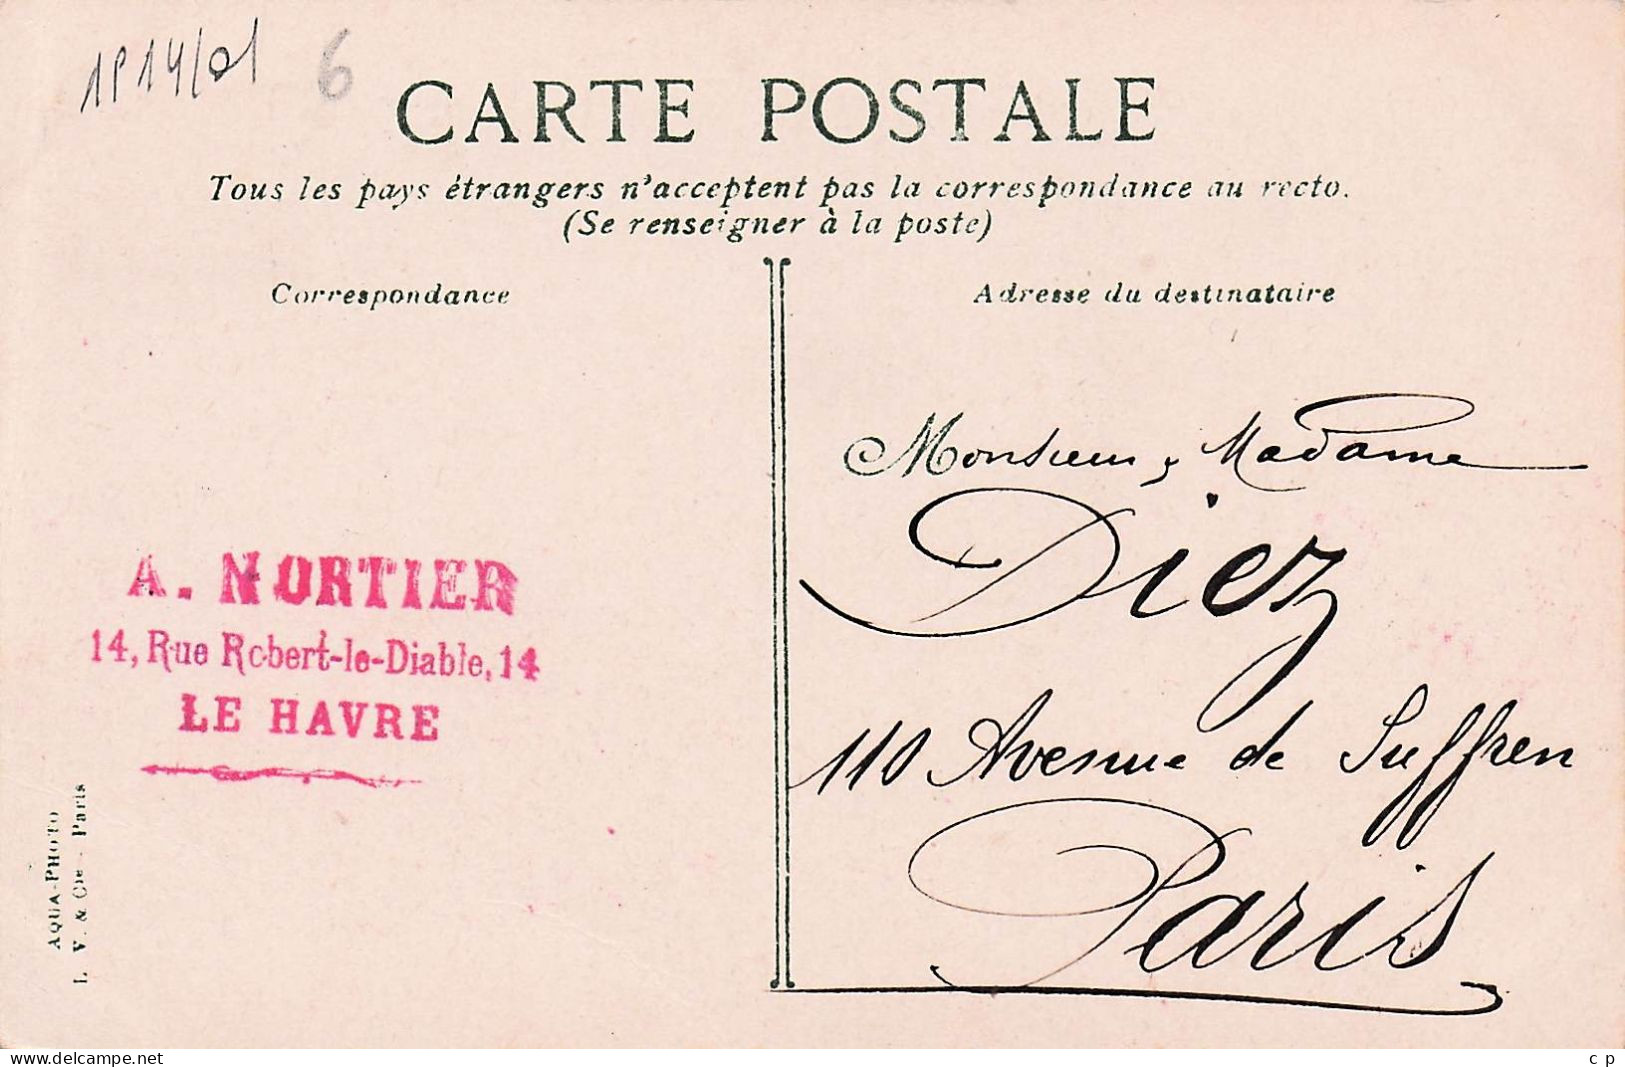 1P14/01 6
CARTE POSTALE
Tous les pays étrangers n'acceptent pas la correspondance au recto.
(Se renseigner à la poste)
Correspondance
Adresse du destinataire
Monsieur & Madame
Diez
110 Avenue de Suffren
Paris
A. NORTIER
14, Rue Robert-le-Diable, 14
LE HAVRE
AQUA-PHOTO
L. V. & Cie - Paris
www.delcampe.net
c p